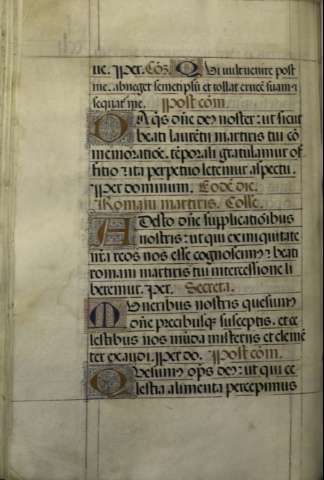 ue. Per. Cõ3. Qui vult venire post
me. abneget semetipsũ et tollat crucẽ suam ⁊
sequat᷑ me. Post cõm.
Da q̃s oñe de⁹ noster: ut sicut
beati laurẽtii martiris tui cõ
memoratiõe. tẽporali gratulamur of
fitio ⁊ ita perpetuo letemur aspectu.
Per dominum. Eodẽ die.
Romani martiris. Colle.
Adesto oñe supplicationibus
nostris: ut qui ex iniquitate
nr̃a reos nos esse cognoscim⁹: beati
romani martiris tui intercessione li
beremur. Per. Secreta.
Muneribus nostris quesum⁹
oñe precibusqꝫ susceptis. et ce
lestibus nos mũda misteriis et clemẽ
ter exaudi. Per do. Post cõm.
Quesum⁹ op̃s de⁹: ut qui ce
lestia alimenta percepimus